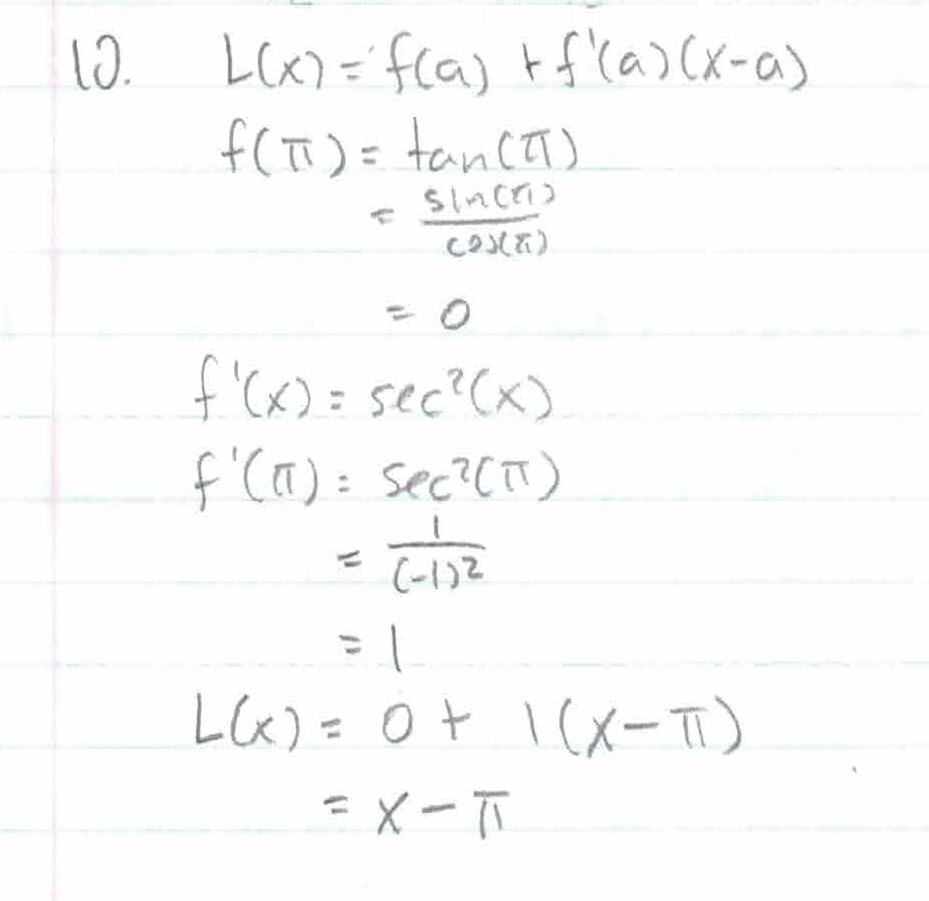 10. L(x) = f(a) + f'(a)(x-a)
f(π) = tan(π)
= sin(π)/cos(π)
= 0
f'(x) = sec²(x)
f'(π) = sec²(π)
= 1/(-1)²
= 1
L(x) = 0 + 1(x-π)
= x - π